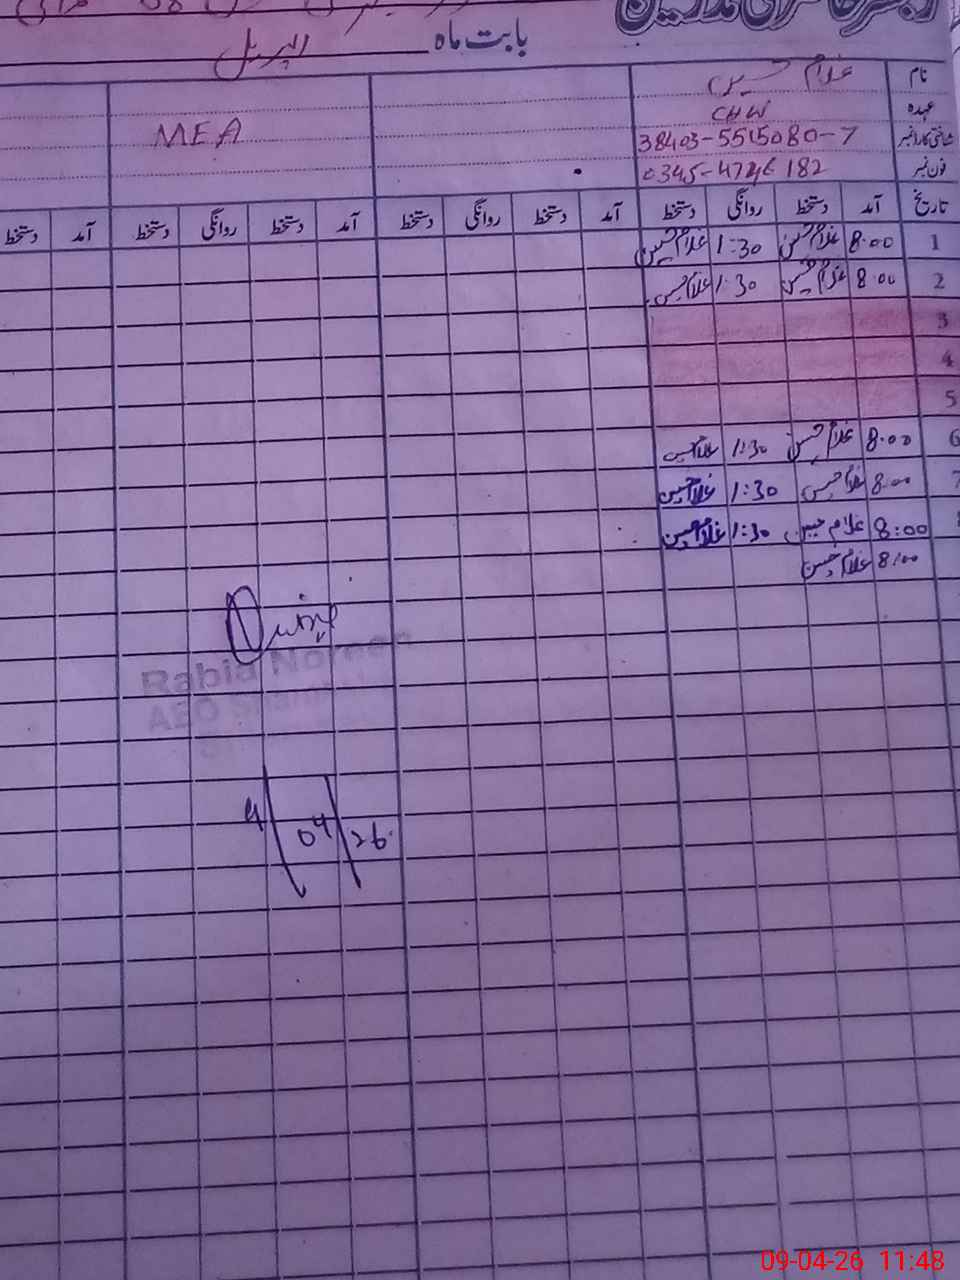 رجسٹر حاضری مدرسین
بابت ماہ اپریل
نام غلام حسین
عہدہ CHW MEA
شناختی کارڈ نمبر 38403-5515080-7
فون نمبر 0345-4746182
تاریخ آمد دستخط روانگی دستخط آمد دستخط روانگی دستخط آمد دستخط روانگی دستخط آمد دستخط
1 8.00 غلام حسین 1:30 غلام حسین
2 8.00 غلام حسین 1:30 غلام حسین
3
4
5
6 8.00 غلام حسین 1:30 غلام حسین
7 8.00 غلام حسین 1:30 غلام حسین
8:00 غلام حسین 1:30 غلام حسین
8:00 غلام حسین
Rabia Noreen
AEO
9/04/26
09-04-26 11:48